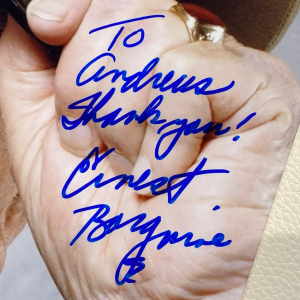 To
Andreus
Thank you!
Ernest
Borgnine